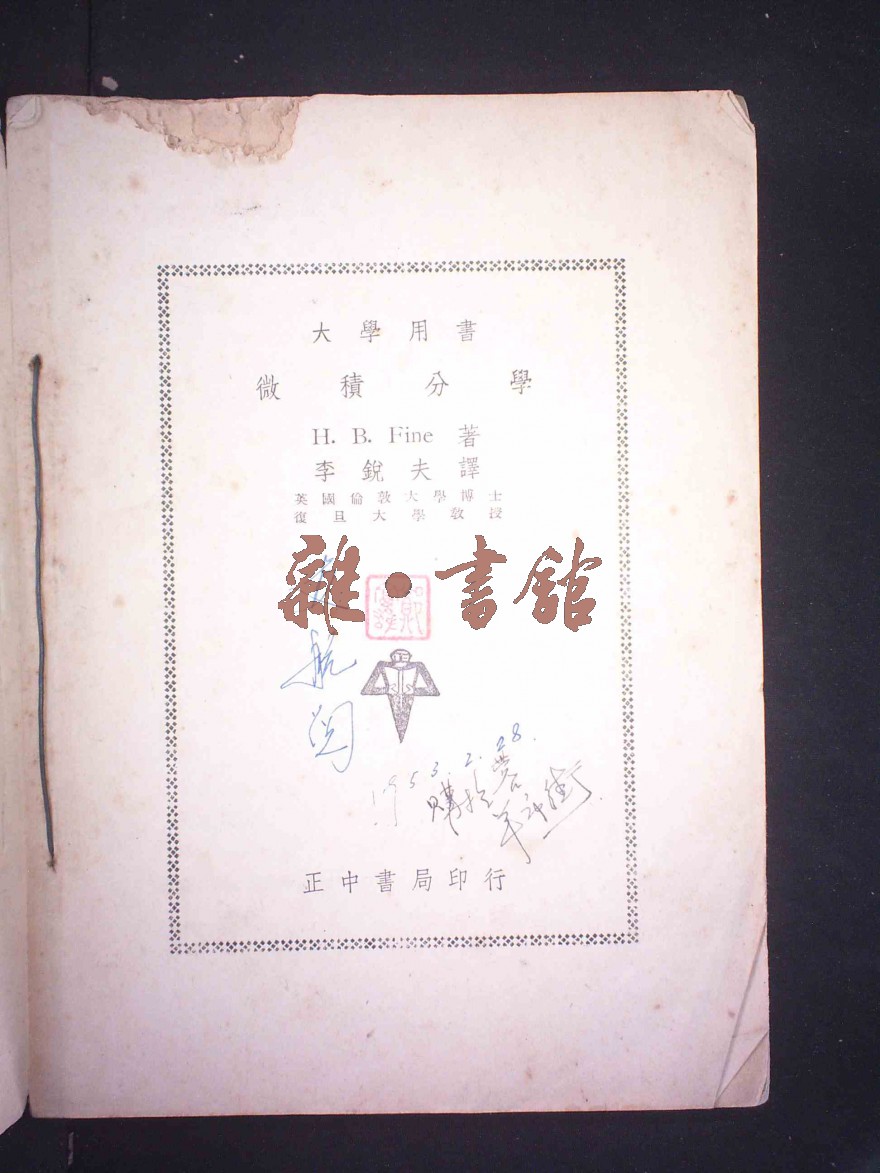 大學用書
微積分學
H. B. Fine 著
李銳夫譯
英國倫敦大學博士
復旦大學教授
雜·書館
航
1953.2.28.
購於蓉
羊市街
正中書局印行